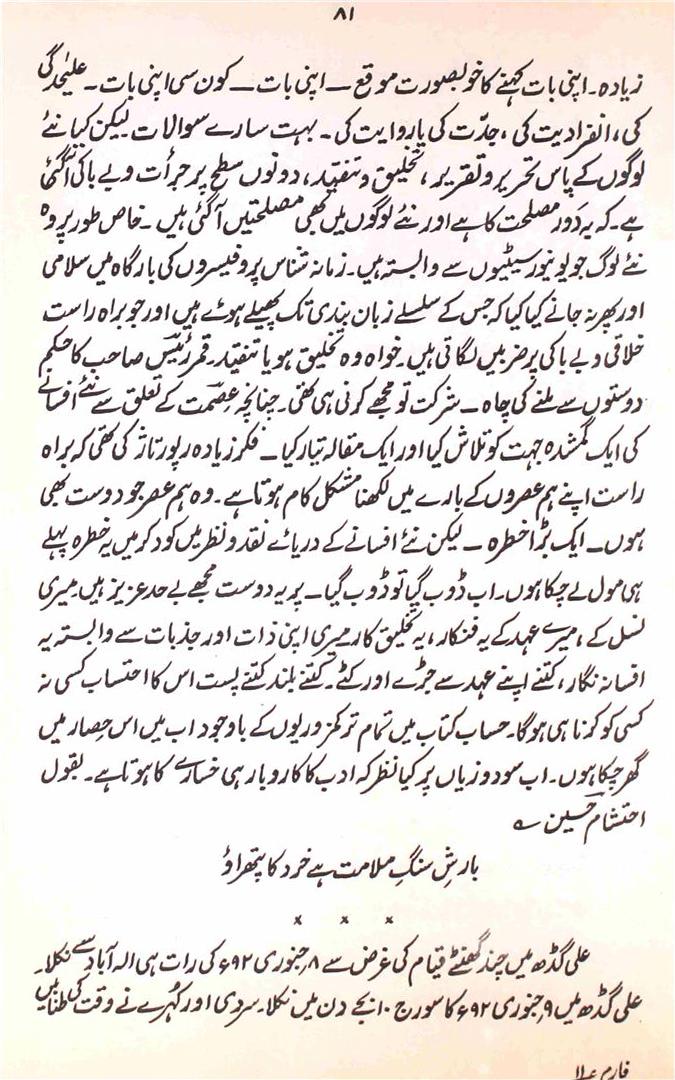 ۸۱
زیادہ۔ اپنی بات کہنے کا خوبصورت موقع — اپنی بات — کون سی اپنی بات۔ علیٰحدگی
کی، انفرادیت کی، جدّت کی یا روایت کی۔ بہت سارے سوالات لیکن کیا نئے
لوگوں کے پاس تحریر و تقریر، تخلیق و تنقید، دونوں سطح پر جرأت و بے باکی آگئی
ہے۔ کہ یہ دَور مصلحت کا ہے اور نئے لوگوں میں بھی مصلحتیں آگئی ہیں۔ خاص طور پر وہ
نئے لوگ جو یونیورسیٹیوں سے وابستہ ہیں۔ زمانہ شناس پروفیسروں کی بارگاہ میں سلامی
اور پھر نہ جانے کیا کیا کہ جس کے سلسلے زبان بندی تک پھیلے ہوئے ہیں اور جو براہ راست
خلاقی و بے باکی پر ضربیں لگاتی ہیں۔ خواہ وہ تخلیق ہو یا تنقید۔ قمر رئیس صاحب کا حکم
دوستوں سے ملنے کی چاہ — شرکت تو مجھے کرنی ہی تھی۔ چنانچہ عصمت کے تعلق سے نئے افسانے
کی ایک گمشدہ جہت کو تلاش کیا اور ایک مقالہ تیار کیا — فکر زیادہ رپورتاژ کی تھی کہ براہ
راست اپنے ہم عصروں کے بارے میں لکھنا مشکل کام ہوتا ہے۔ وہ ہم عصر جو دوست بھی
ہوں — ایک بڑا خطرہ — لیکن نئے افسانے کے دریائے نقد و نظر میں کود کر میں یہ خطرہ پہلے
ہی مول لے چکا ہوں۔ اب ڈوب گیا تو ڈوب گیا — پر یہ دوست مجھے بے حد عزیز ہیں میری
نسل کے، میرے عہد کے یہ فنکار، یہ تخلیق کار میری اپنی ذات اور جذبات سے وابستہ یہ
افسانہ نگار، کتنے اپنے عہد سے جڑے اور کٹے۔ کتنے بلند کتنے پست اس کا احتساب کسی نہ
کسی کو کرنا ہی ہوگا۔ حساب کتاب میں تمام تر کمزوریوں کے باوجود اب میں اس حصار میں
گھر چکا ہوں۔ اب سود و زیاں پر کیا نظر کہ ادب کا کاروبار ہی خسارے کا ہوتا ہے۔ بقول
احتشام حسین ؎
بارشِ سنگِ ملامت ہے خرد کا پتھراؤ
× × ×
علی گڈھ میں چند گھنٹے قیام کی غرض سے ۸؍ جنوری ۹۲ء کی رات ہی الہ آباد سے نکلا۔
علی گڈھ میں ۹؍ جنوری ۹۲ء کا سورج ۱۰ بجے دن میں نکلا۔ سردی اور کُہرے نے وقت کی طنابیں
فارم ۱۱